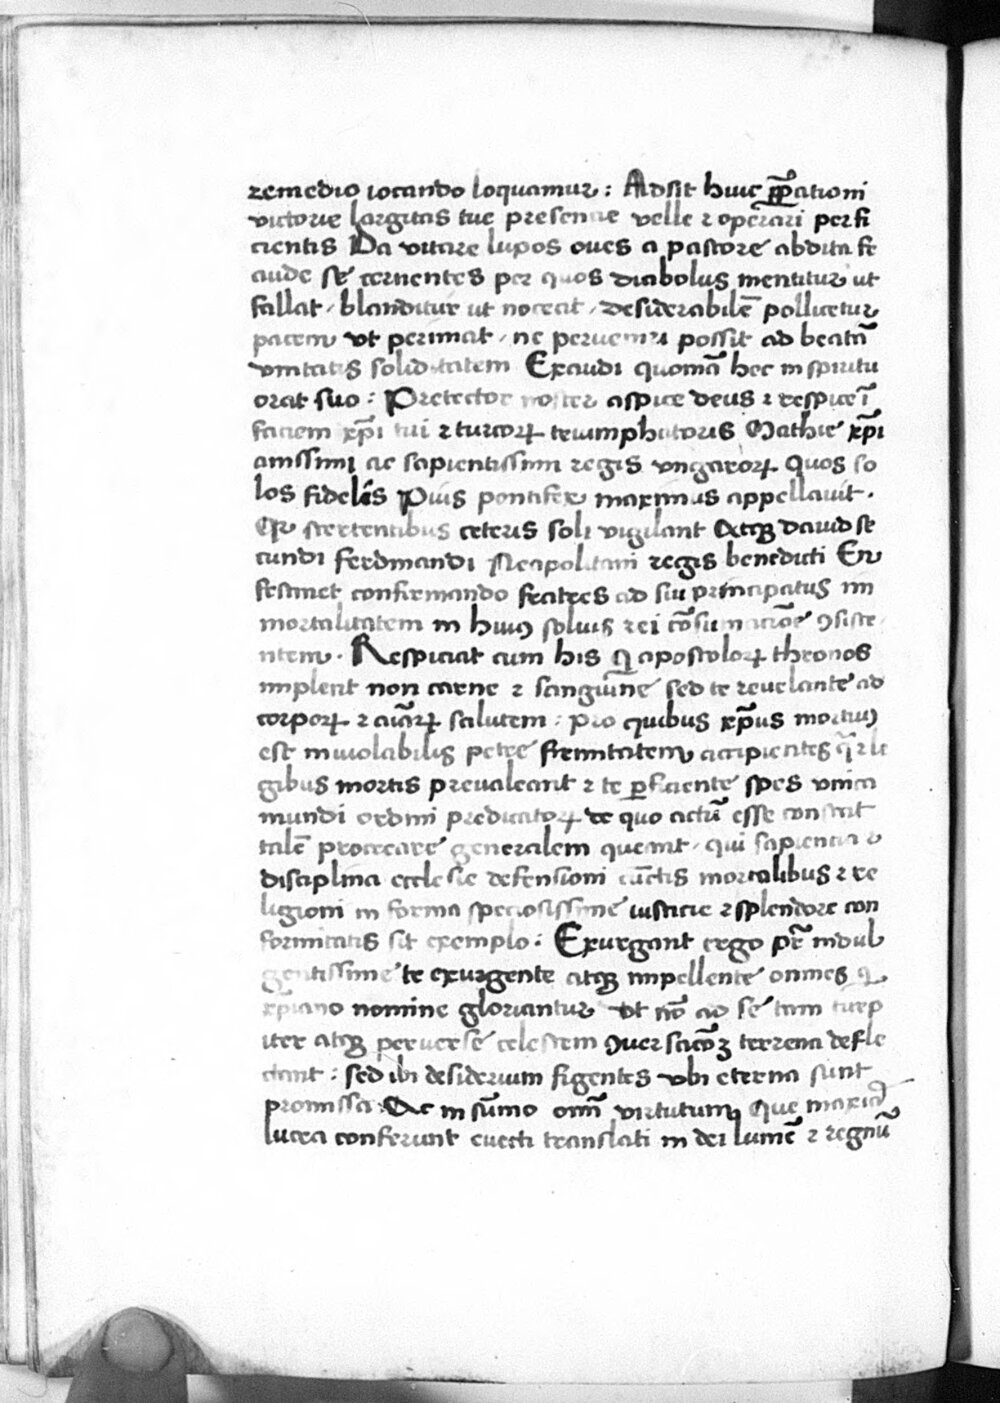 remedio iocando loquamur : Adsit huic ꝑꝑationi
victorie largitas tue presencie velle ⁊ operari perfi
cientis Da vitare lupos oues a pastore abdita fe
aude se cernentes per quos diabolus mentitur ut
fallat / blanditur ut noceat / desiderabilē pollicetur
pacem vt perimat / ne peruenire possit ad beatā
vnitatis soliditatem Exaudi quoniā hec in spiritu
orat suo : Protector noster aspice deus ⁊ respice ī
faciem xp̄i tui ⁊ turcoꝝ triumphatoris Mathie xp̄i
anissimi ac sapientissimi regis vngaroꝝ Quos so
los fideles Pius pontifex maximus appellauit .
Qr̄ stertentibus ceteris soli vigilant Atqꝫ dauid se
cundi ferdinandi Neapolitani regis benedicti Et
festinet confirmando fratres ad sui principatus im
mortalitatem in huiꝰ soluis rei cōsumacōne ꝯsiste
ntem . Respiciat cum his qͥ apostoloꝝ thronos
implent non carne ⁊ sanguine sed te reuelante ad
corpoꝝ ⁊ aīaꝝ salutem : pro quibus xp̄us mortuꝰ
est inuiolabilis petre firmitatem accipientes
gibus mortis preualeant ⁊ te ꝑficiente spes vnica
mundi ordini predicatoꝝ de quo actū esse constat
talē procreare generalem queant / qui sapiencia ⁊
disciplina ecclesie defensioni cūctis mortalibus ⁊ re
ligioni in forma speciosissime iusticie ⁊ splendore con
formitatis sit exemplo : Exurgant ergo pr̄ indul
gentissime te exurgente atqꝫ impellente omnes qͥ
xp̄iano nomine gloriantur Vt nō ad se tam turp
iter atqꝫ peruerse celestem terrena defle
ctant : sed ibi desiderium figentes vbi eterna sunt
promissa : Ac in sūmo omī virtutum Que maxīa
lucra conferunt euecti translati in dei lumē ⁊ regnū